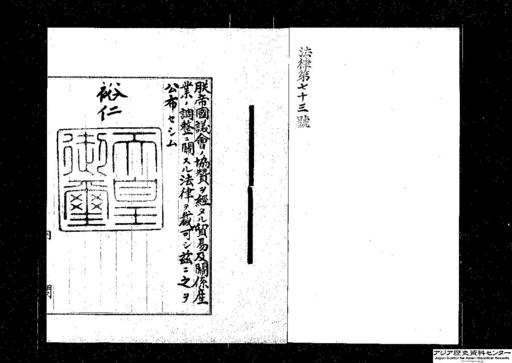 法律第七十三號
朕帝國議會ノ協贊ヲ經タル貿易及關係產
業ノ調整ニ關スル法律ヲ裁可シ茲ニ之ヲ
公布セシム
裕仁
天皇御璽
內
閣
アジア歴史資料センター
Japan Center for Asian Historical Records